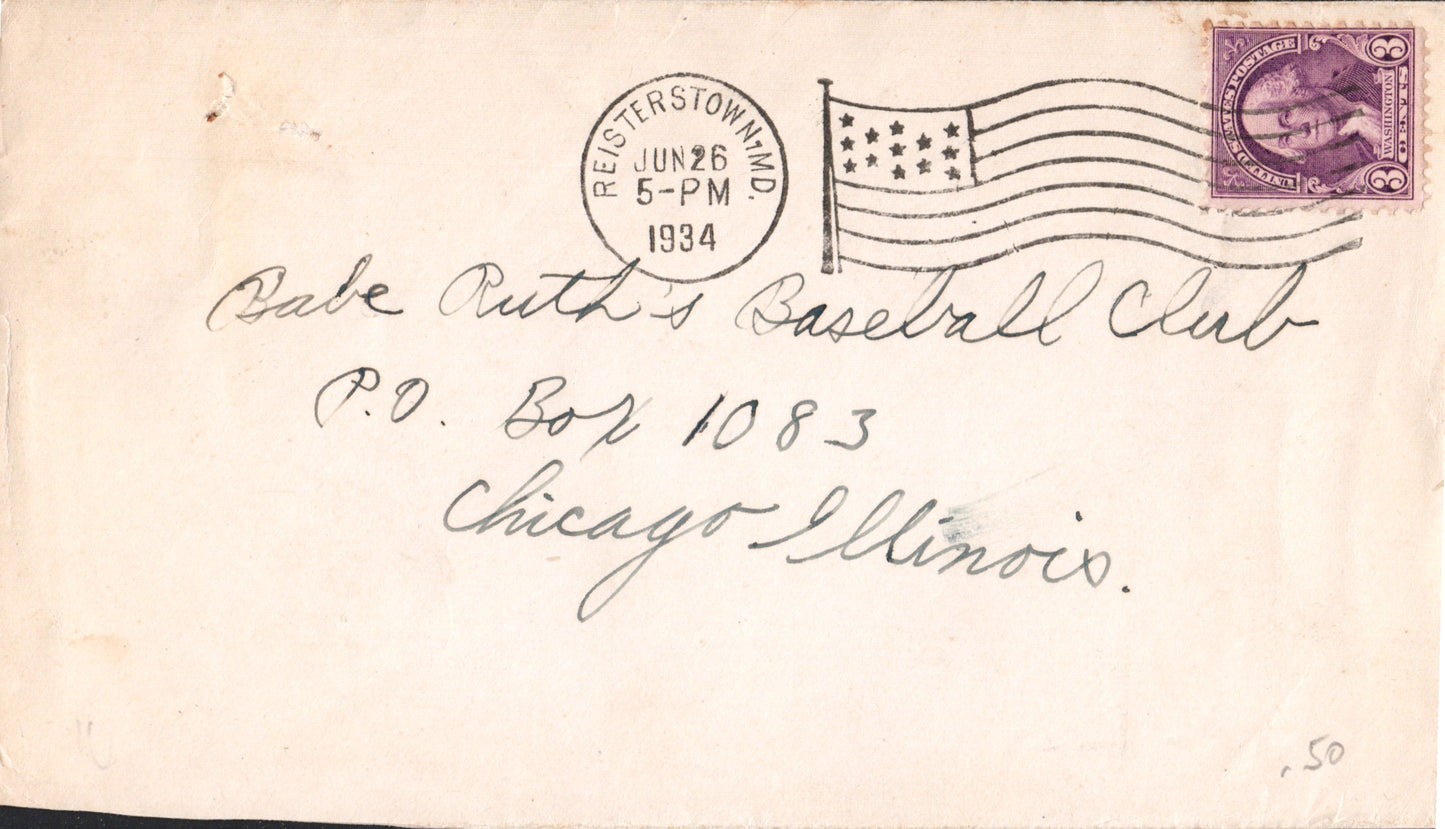 REISTERSTOWN, MD.
JUN 26
5-PM
1934
UNITED STATES POSTAGE
3 CENTS 3
WASHINGTON
Babe Ruth's Baseball Club
P.O. Box 1083
Chicago Illinois.
.50